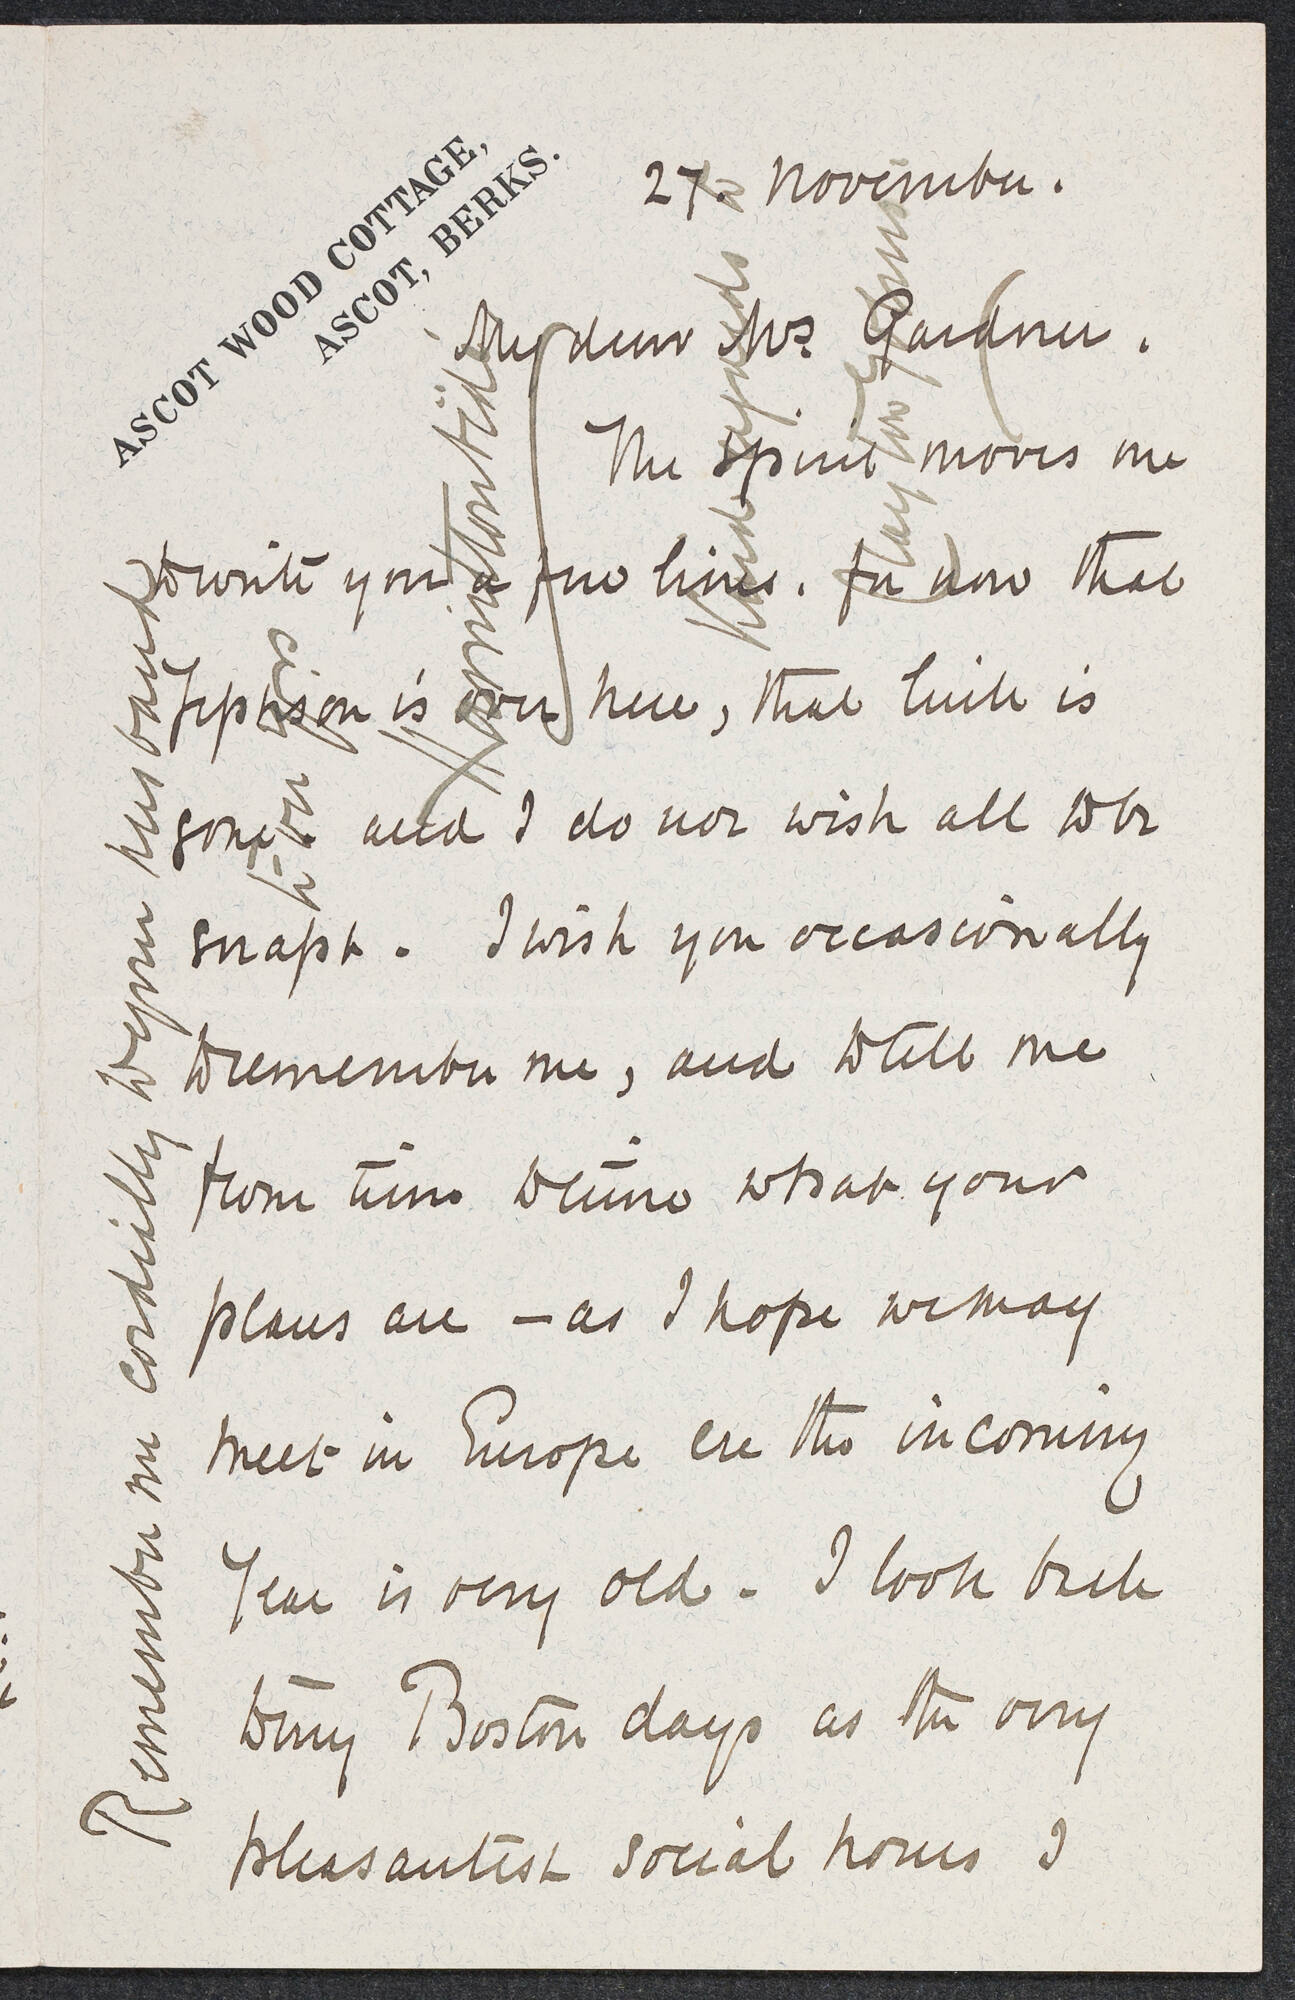 ASCOT WOOD COTTAGE,
ASCOT, BERKS.
27. November.
My dear Mrs Gardner.
The spirit moves me
to write you a few lines. For now that
Jephson is over here, that link is
gone and I do not wish all to be
snapt. I wish you occasionally
to remember me, and to tell me
from time to time what your
plans are – as I hope we may
meet in Europe ere the incoming
Year is very old. I look back
to my Boston days as the very
pleasantest social hours I
Remember me cordially to your husband
Kind regards to